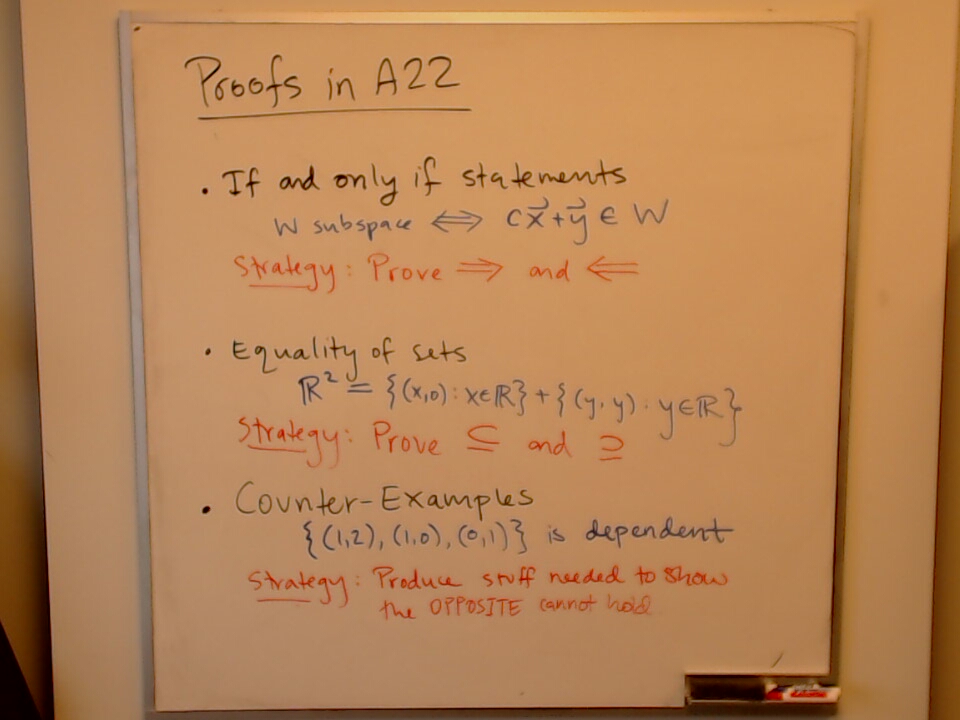 Proofs in A22
• If and only if statements
W subspace ⟺ cx⃗+y⃗ ∈ W
Strategy: Prove ⟹ and ⟸
• Equality of sets
ℝ² = {(x,0): x∈ℝ} + {(y,y): y∈ℝ}
Strategy: Prove ⊆ and ⊇
• Counter-Examples
{(1,2), (1,0), (0,1)} is dependent
Strategy: Produce stuff needed to show
the OPPOSITE cannot hold